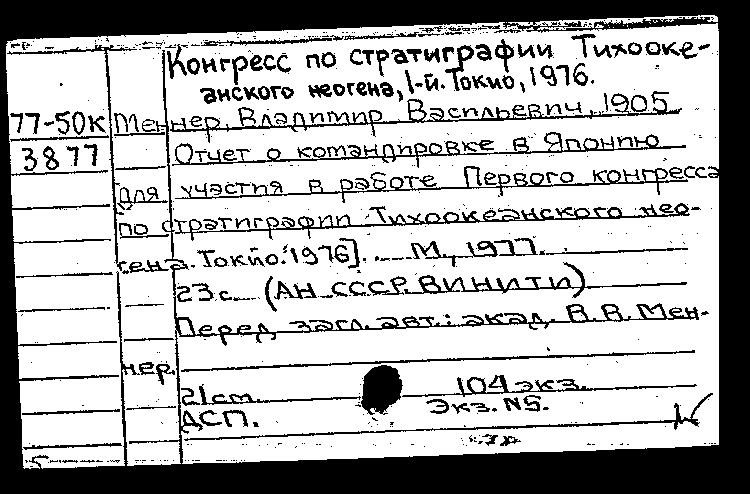 Конгресс по стратиграфии Тихооке-
анского неогена, 1-й. Токио, 1976.
77-50к Меннер, Владимир Васильевич, 1905
3877 Отчет о командировке в Японию
для участия в работе Первого конгресса
по стратиграфии Тихоокеанского нео-
гена. Токио. 1976]. М., 1977.
23с. (АН СССР. ВИНИТИ)
Перед загл. авт.: акад. В.В. Мен-
нер.
21см. 104 экз.
ДСП. Экз. №5.